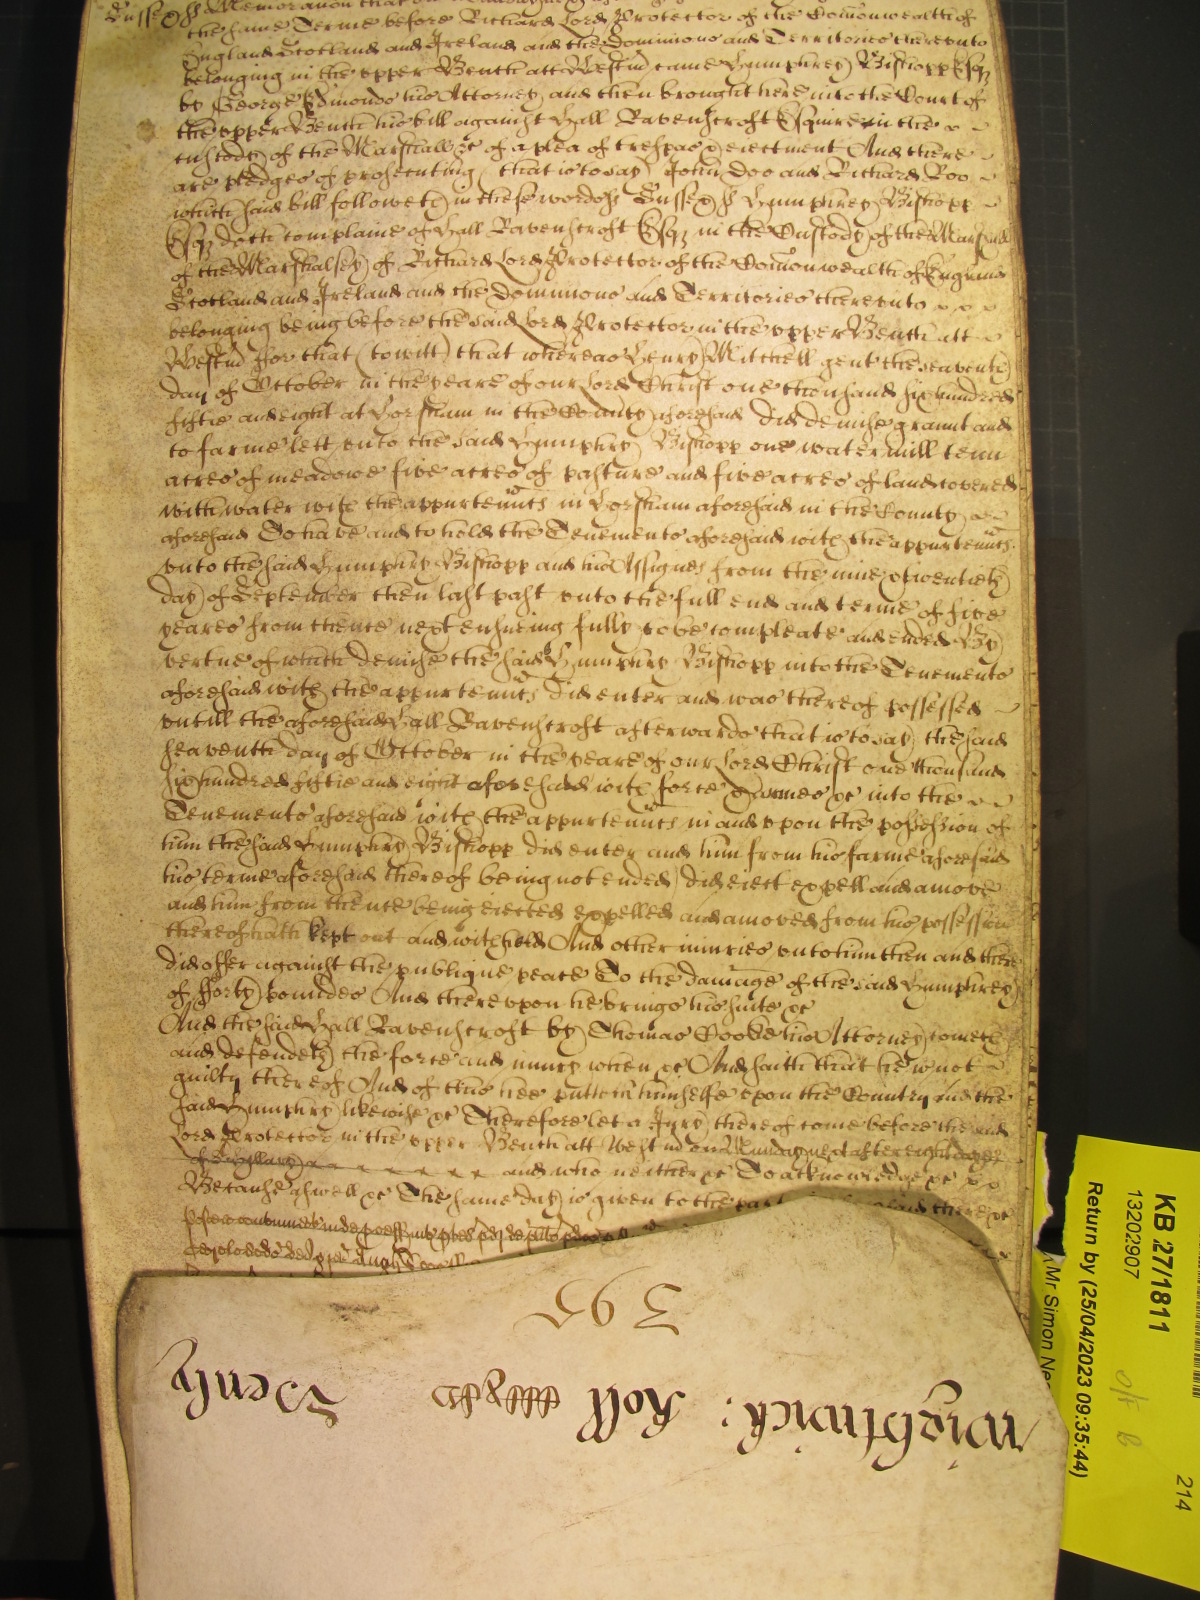 Sussex ss Memorandum that on
the same Terme before Richard Lord Protector of the Comonwealth of
England Scotland and Ireland and the Dominions and Territories thereunto
belonging in the upper Bench att Westmr came Humphrey Bishopp Esqr
by George Simonds his Attorney and then brought here into the Court of
the upper Bench his bill against Hall Ravenscroft Esquire in the
custody of the Marshall &c of a plea of trespas & eiectment And there
are pledges of prosecuting (that is to say) John Doo and Richard Roo
which said bill followeth in these words ss Sussex ss Humphrey Bishopp
Esqr doth complaine of Hall Ravenscroft Esqr in the Custody of the Marshall
of the Marshalsey of Richard Lord Protector of the Comonwealth of England
Scotland and Ireland and the Dominions and Territories thereunto
belonging being before the said Lord Protector in the upper Bench att
Westmr For that (to witt) that whereas Henry Mitchell gent the seaventh
day of October in the yeare of our Lord Christ one thousand six hundred
fiftie and eight at Horsham in the County aforesaid did demise graunt and
to farme lett unto the said Humphry Bishopp one water mill tenn
acres of meadowe five acres of pasture and five acres of land covered
with water with the appurtennts in Horsham aforesaid in the County
aforesaid To have and to hold the Tenements aforesaid with the appurtennts
unto the said Humphry Bishopp and his Assignes from the nine & twentieth
day of September then last past unto the full end and terme of five
yeares from thence next ensueing fully to be compleate and ended By
vertue of which demise the said Humphry Bishopp into the Tenements
aforesaid with the appurtennts did enter and was thereof possessed
untill the aforesaid Hall Ravenscroft afterwards that is to say the said
seaventh day of October in the yeare of our Lord Christ one thousand
sixhundred fiftie and eight aforesaid with force & armes &c into the
Tenements aforesaid with the appurtennts in and upon the possession of
him the said Humphry Bishopp did enter and him from his farme aforesaid
his terme aforesaid thereof being not ended did eiect expell and amove
and him from thence being eiected expelled and amoved from his possession
thereof hath kept out and withhold And other iniuries unto him then and there
did offer against the publique peace To the damage of the said Humphrey
of Forty poundes And thereupon he brings his suite &c
And the said Hall Ravenscroft by Thomas Cooke his Attorney cometh
and defendeth the force and iniury when &c And saith that he is not
guilty thereof And of this hee putteth himselfe upon the Country And the
said Humphry likewise &c Therefore let a Jury thereof come before the said
Lord Protector in the upper Bench att Westmr on Munday next after eight dayes
of Hillary and who neither &c To acknowledge &c
Because aswell &c The same day is given to the
395
Wightwick: Roll Henly
KB 27/1811
13202907
Return by (25/04/2023 09:35:44)
Mr Simon
214